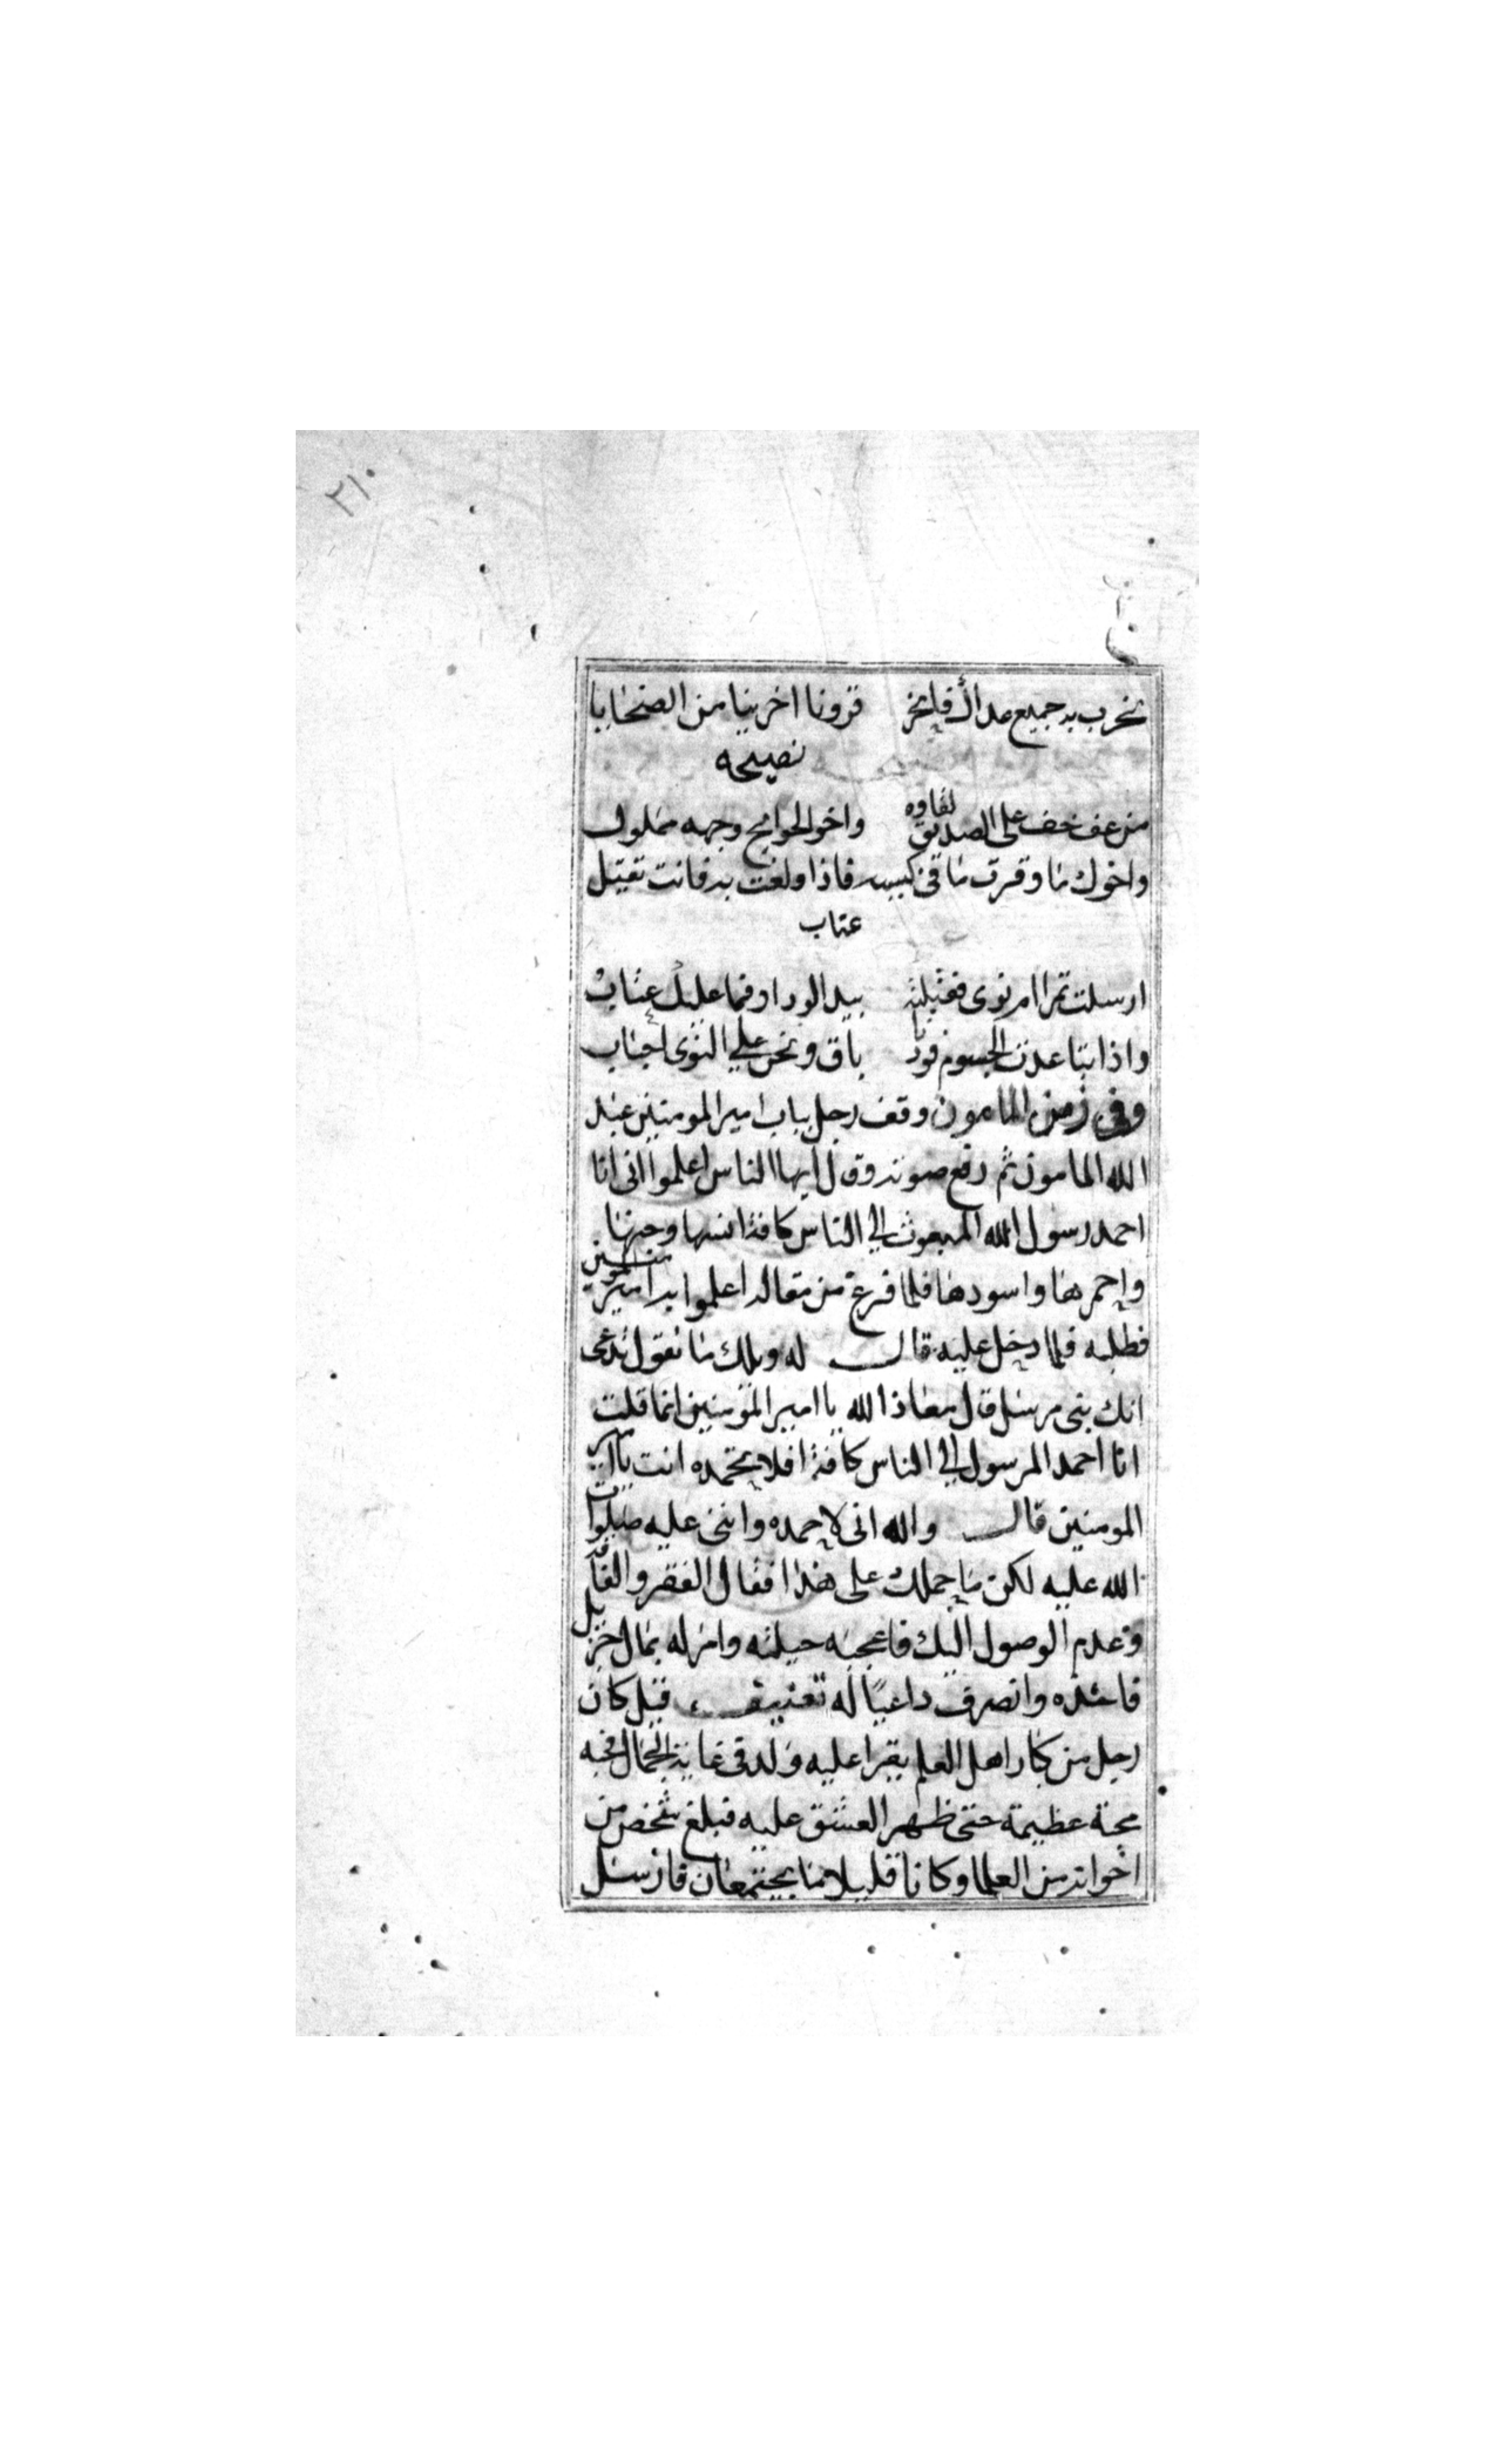 ٢١٠
تخرب به جميع عداك فانحر قرونا اخرينا من الضحايا
نصيحه
من عف خف على الصديق لقاوه واخو الحوايج وجهه مملول
واخوك ما وفرت ما في كيسه فاذا ولغت به فانت ثقيل
عتاب
ارسلت تمرا ام نوى فقبلته بيد الوداد فما عليك عتاب
واذا تباعدت الجسوم فودنا باق ونحن على النوى احباب
وفي زمن المامون وقف رجل بباب امير المومنين عبد
الله المامون ثم رفع صوته وقال ايها الناس اعلموا اني انا
احمد رسول الله المبعوث الي الناس كافة انسها وجنها
واحمرها واسودها فلما فرغ من مقاله اعلموا به امير المومنين
فطلبه فلما دخل عليه قال له ويلك ما تقول تدعى
انك نبى مرسل قال معاذ الله يا امير المؤمنين انما قلت
انا احمد المرسول الي الناس كافة افلا تحمده انت يا امير
المومنين قال والله انى لاحمده واثنى عليه صلوات
الله عليه لكن ما حملك على هذا فقال الفقر والفاقة
وعدم الوصول اليك فاعجبه حيلته وامر له بمال جزيل
فاخذه وانصرف داعيا له تعنيف قيل كان
رجل من كبار اهل العلم يقرا عليه ولد في غاية الجمال فحبه
محبة عظيمة حتى ظهر العشق عليه فبلغ شخص من
اخوانه من العلما وكانا قليلا ما يجتمعان فارسل